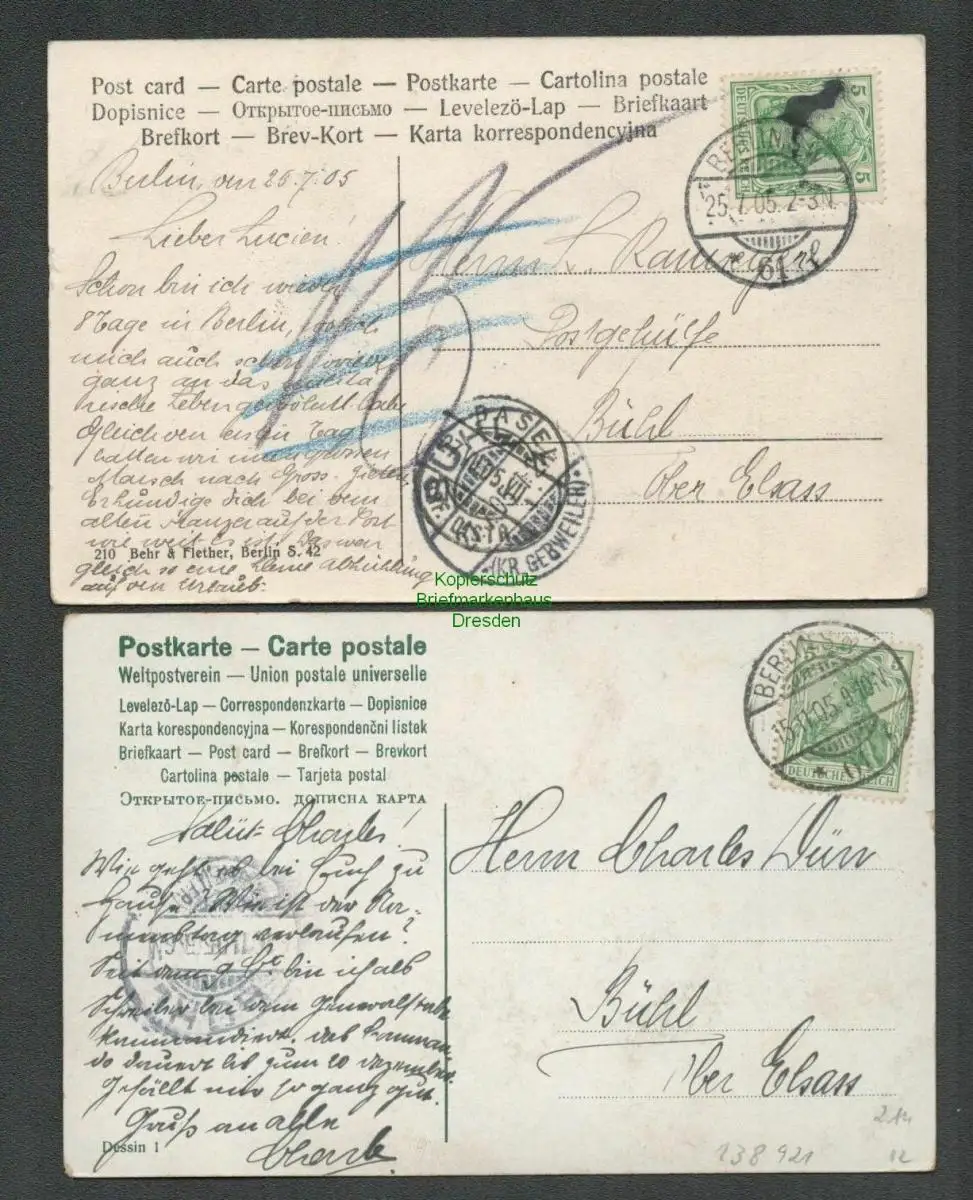 Post card — Carte postale — Postkarte — Cartolina postale
Dopisnice — Открытое-письмо — Levelező-Lap — Briefkaart
Brefkort — Brev-Kort — Karta korrespondencyjna
5
5
DEUTSCHES REICH
BERLIN S.W.
25.7.05. 2-3N.
61
Berlin, den 25.7.05
Lieber Lucien!
Schon bin ich wieder
8 Tage in Berlin,
mich auch schon wieder
ganz an das
rische Leben gewöhnt.
Gleich den ersten Tag
hatten wir
Marsch nach Gross.
Erkundige dich bei dem
alten auf der Post
wie weit es ist. Das war
gleich so eine kleine Abkühlung
auf den Urlaub.
Herrn L.
Postgehülfe
Bühl
Ober Elsass
BASEL
(KR. GEBWEILER)
210 Behr & Flether, Berlin S. 42
Kopierschutz
Briefmarkenhaus
Dresden
Postkarte — Carte postale
Weltpostverein — Union postale universelle
Levelező-Lap — Correspondenzkarte — Dopisnice
Karta korespondencyjna — Korespondenční listek
Briefkaart — Post card — Brefkort — Brevkort
Cartolina postale — Tarjeta postal
Открытое-письмо. дописна карта
BERLIN
15.11.05. 9-10
DEUTSCHES REICH
Salüt Charles!
Wie geht es bei Euch zu
Hause? Wie ist der Na-
menstag verlaufen?
Seit dem 9. bin ich als
Schreiber bei dem Generalstabe
kommandiert. das Komman
do dauert bis zum 20 Dezember.
Gefällt mir so ganz gut.
Gruß an alle
Charles
Herrn Charles Dürr
Bühl
Ober Elsass
Dessin 1
138 921